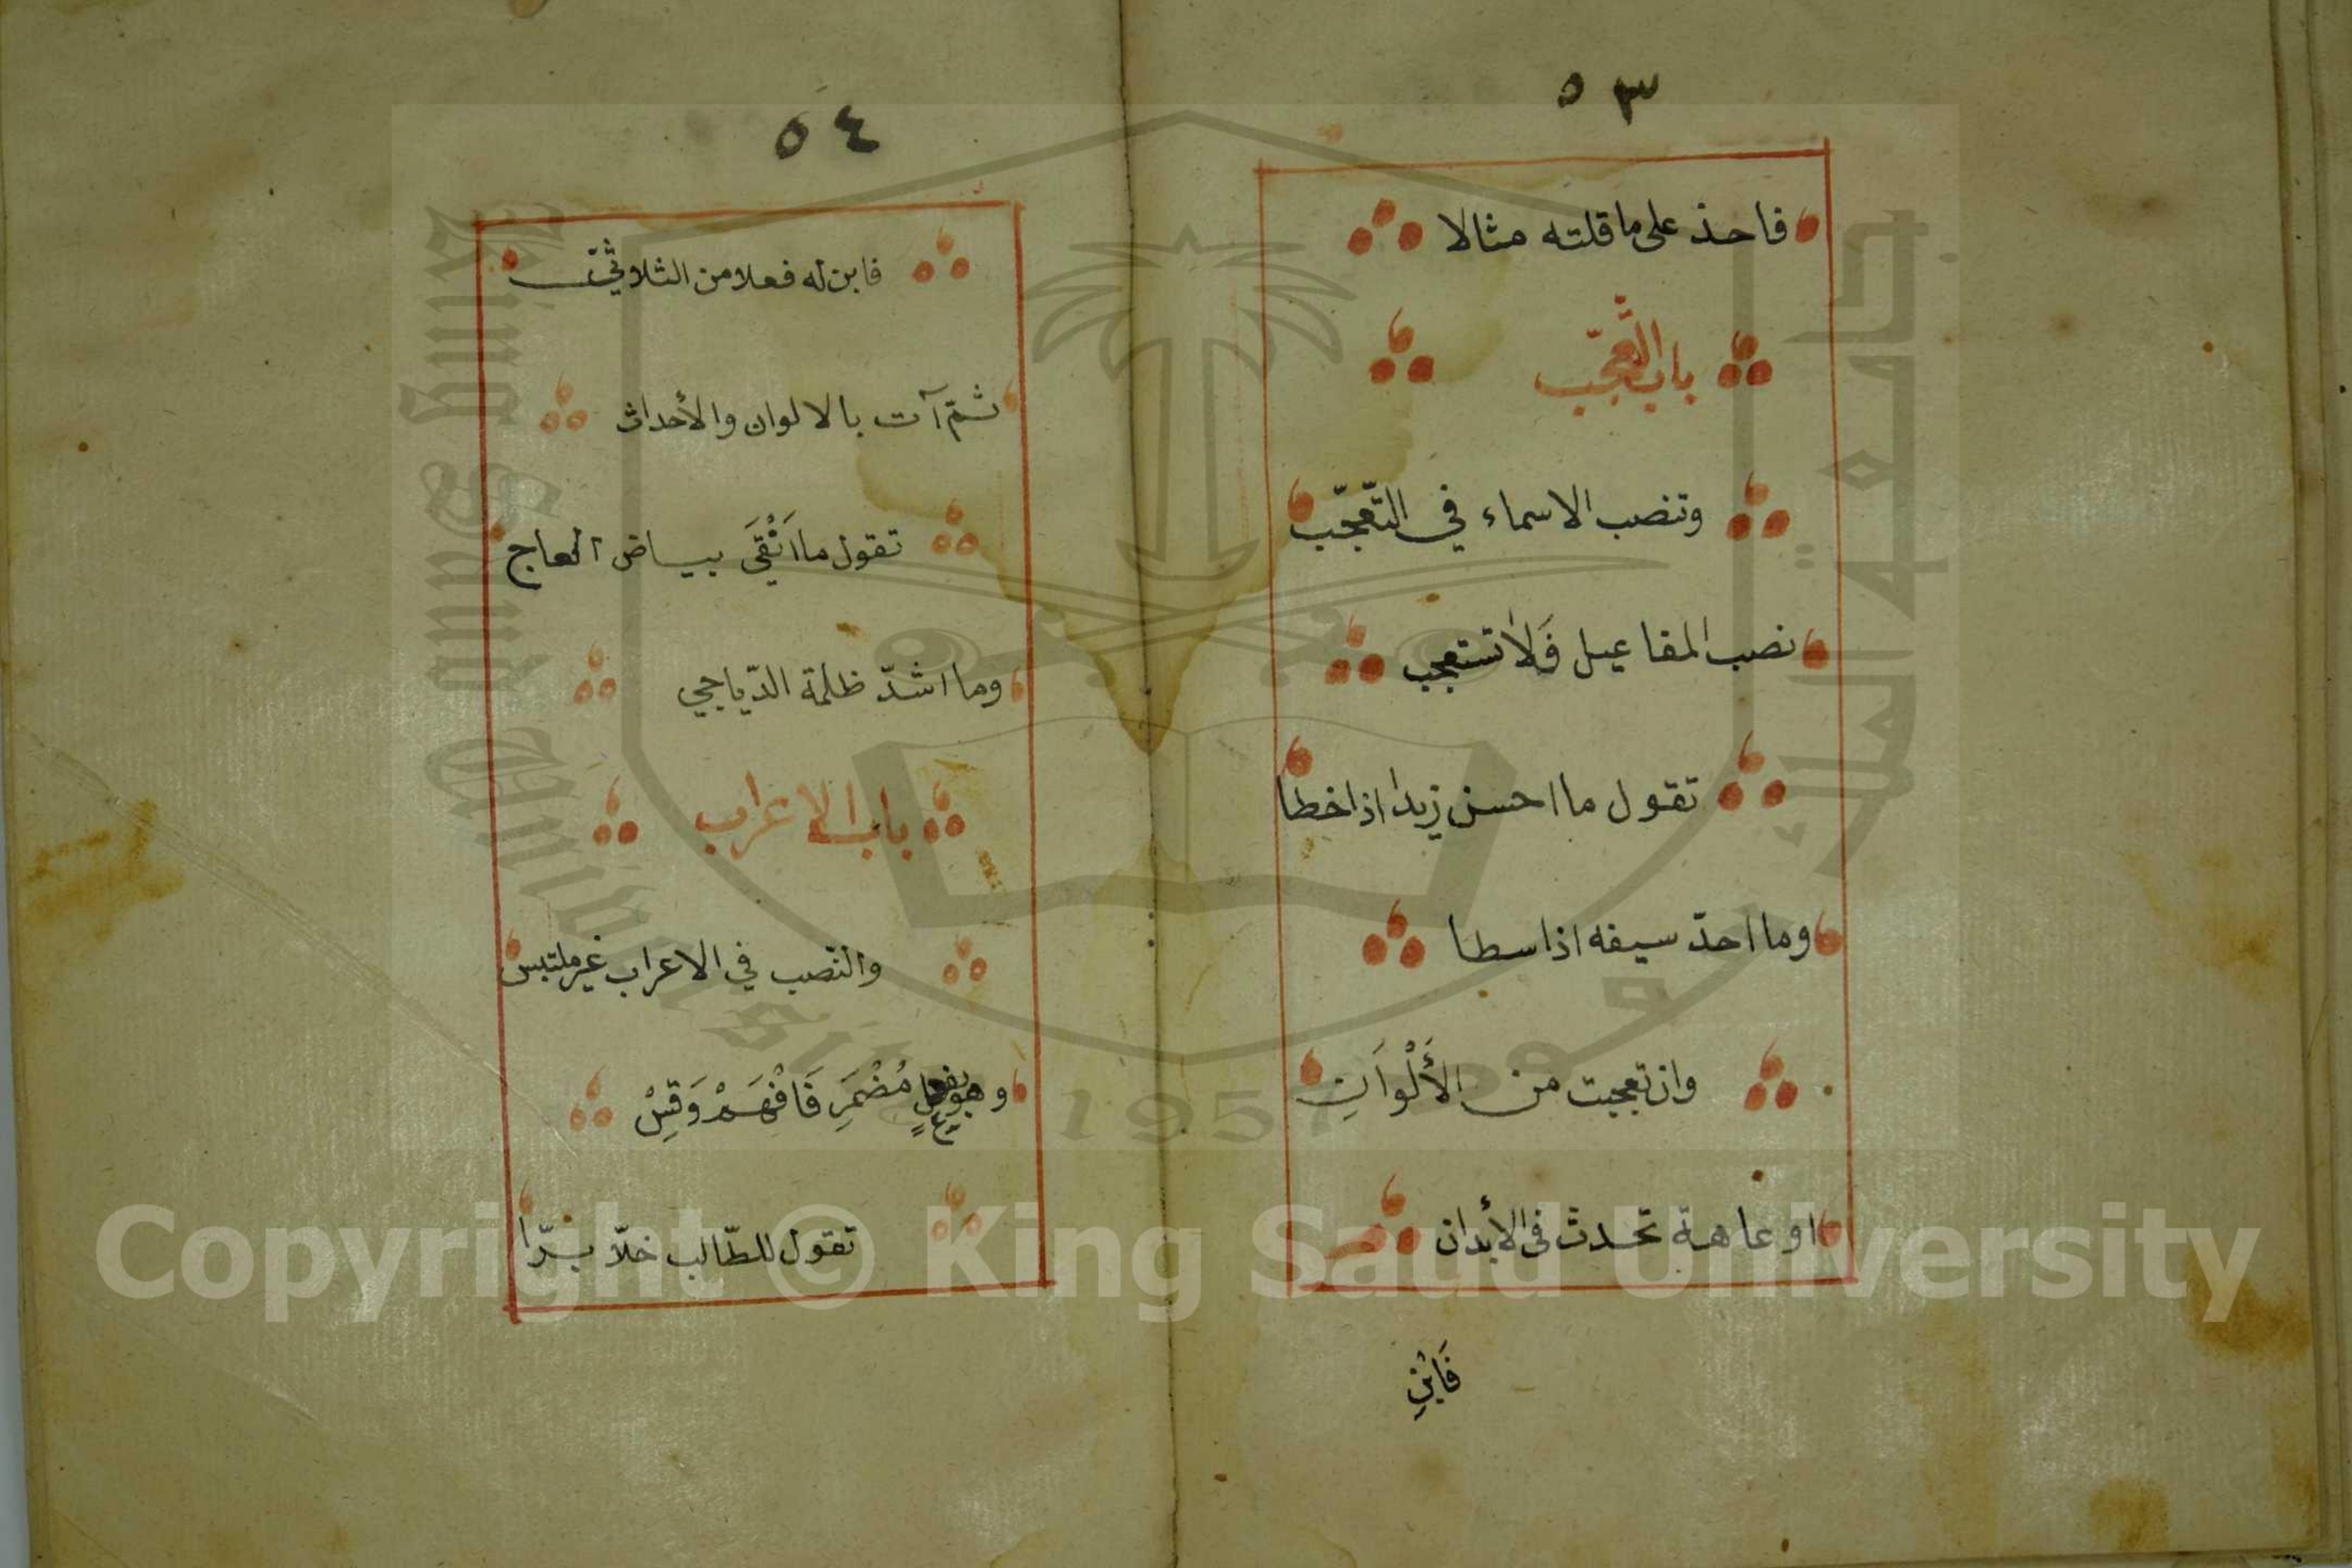 ٥٣
فاحذ على ما قلته مثالا
باب التّعجّب
وتنصب الاسماء في التّعجّب
نصب المفاعيل فَلا تستعجب
تقول ما احسن زيدا اذا خطا
وما احدّ سيفه اذا سطا
وان تعجبت من الأَلْوَانِ
او عاهة تحدث فى الأبدان
فَابْنِ
٥٤
فابن له فعلا من الثلاثيّ
ثمّ آت بالالوان والأحداث
تقول ما اَنْقَىَ بياض العاج
وما اشدّ ظلمة الدّياجي
باب الاغراب
والنّصب في الاعراب غير ملتبس
وهو بفعلٍ مُضْمَرِ فَافْهَمْ وَقِسْ
تقول للطّالب خلّا برّا
جامعة الملك سعود
King Saud University
1957
Copyright © King Saud University